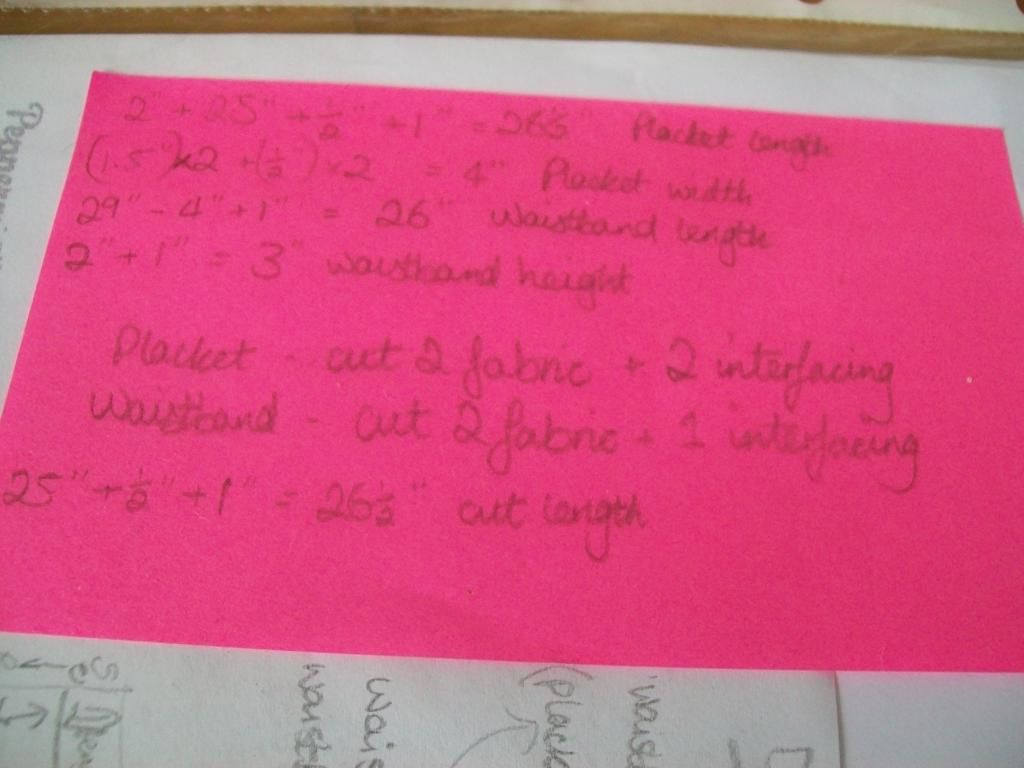 2" + 25" + 1/2" + 1" = 26 1/2" Placket length
(1.5")x2 + (1/2")x2 = 4" Placket width
29" - 4" + 1" = 26" Waistband length
2" + 1" = 3" waistband height
Placket - cut 2 fabric + 2 interfacing
Waistband - cut 2 fabric + 1 interfacing
25" + 1/2" + 1" = 26 1/2" cut length